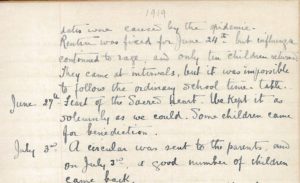 1919
dates were caused by the epidemic.
was fixed for June 24th but influenza
continued to rage, and only ten children returned.
They came at intervals, but it was impossible
to follow the ordinary school time-table.
June 27th Feast of the Sacred Heart. We kept it as
solemnly as we could. Some children came
for benediction.
July 3rd A circular was sent to the parents, and
on July 3rd, a good number of children
came back.